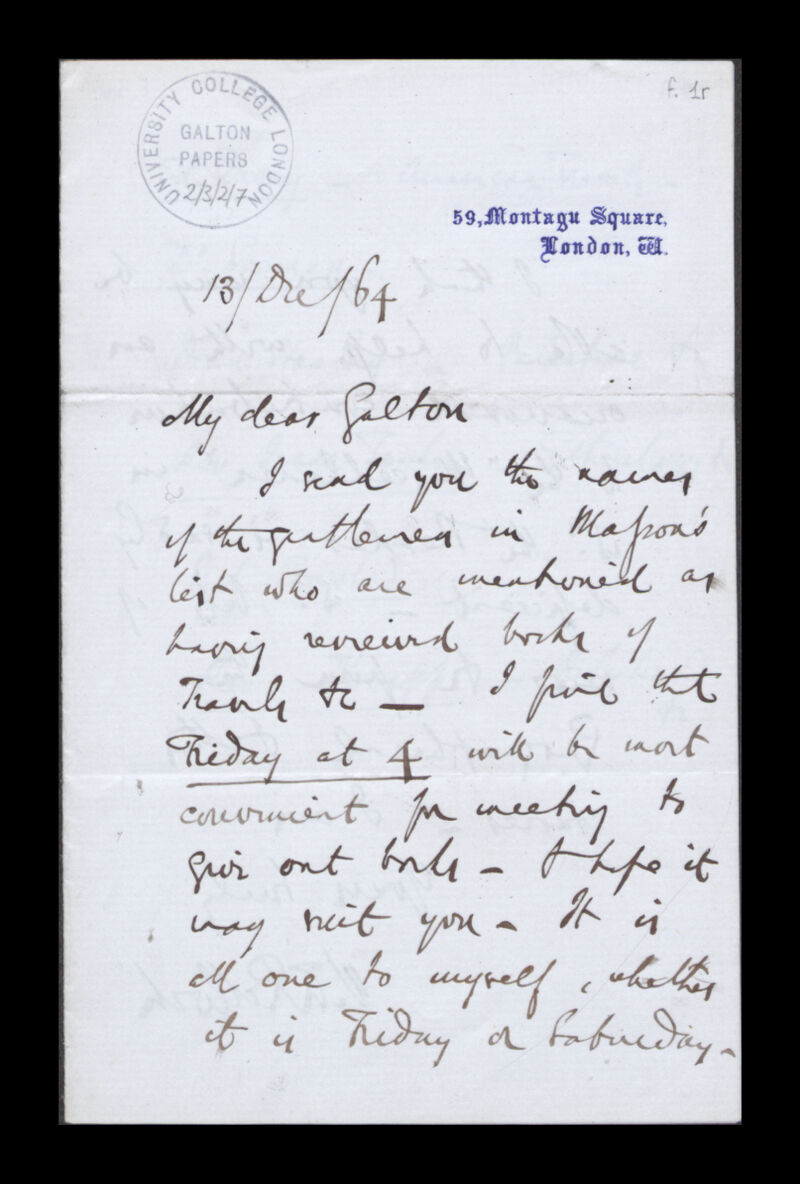 f. 1r
UNIVERSITY COLLEGE LONDON
GALTON
PAPERS
2/3/2/7
59, Montagu Square,
London, W.
13/Dec/64
My dear Galton
I send you the names
of the gentlemen in Masson's
list who are mentioned as
having reviewed books of
Travels &c — I find that
Friday at 4 will be most
convenient for meeting to
give out books – I hope it
may suit you – It is
all one to myself, whether
it is Friday or Saturday –